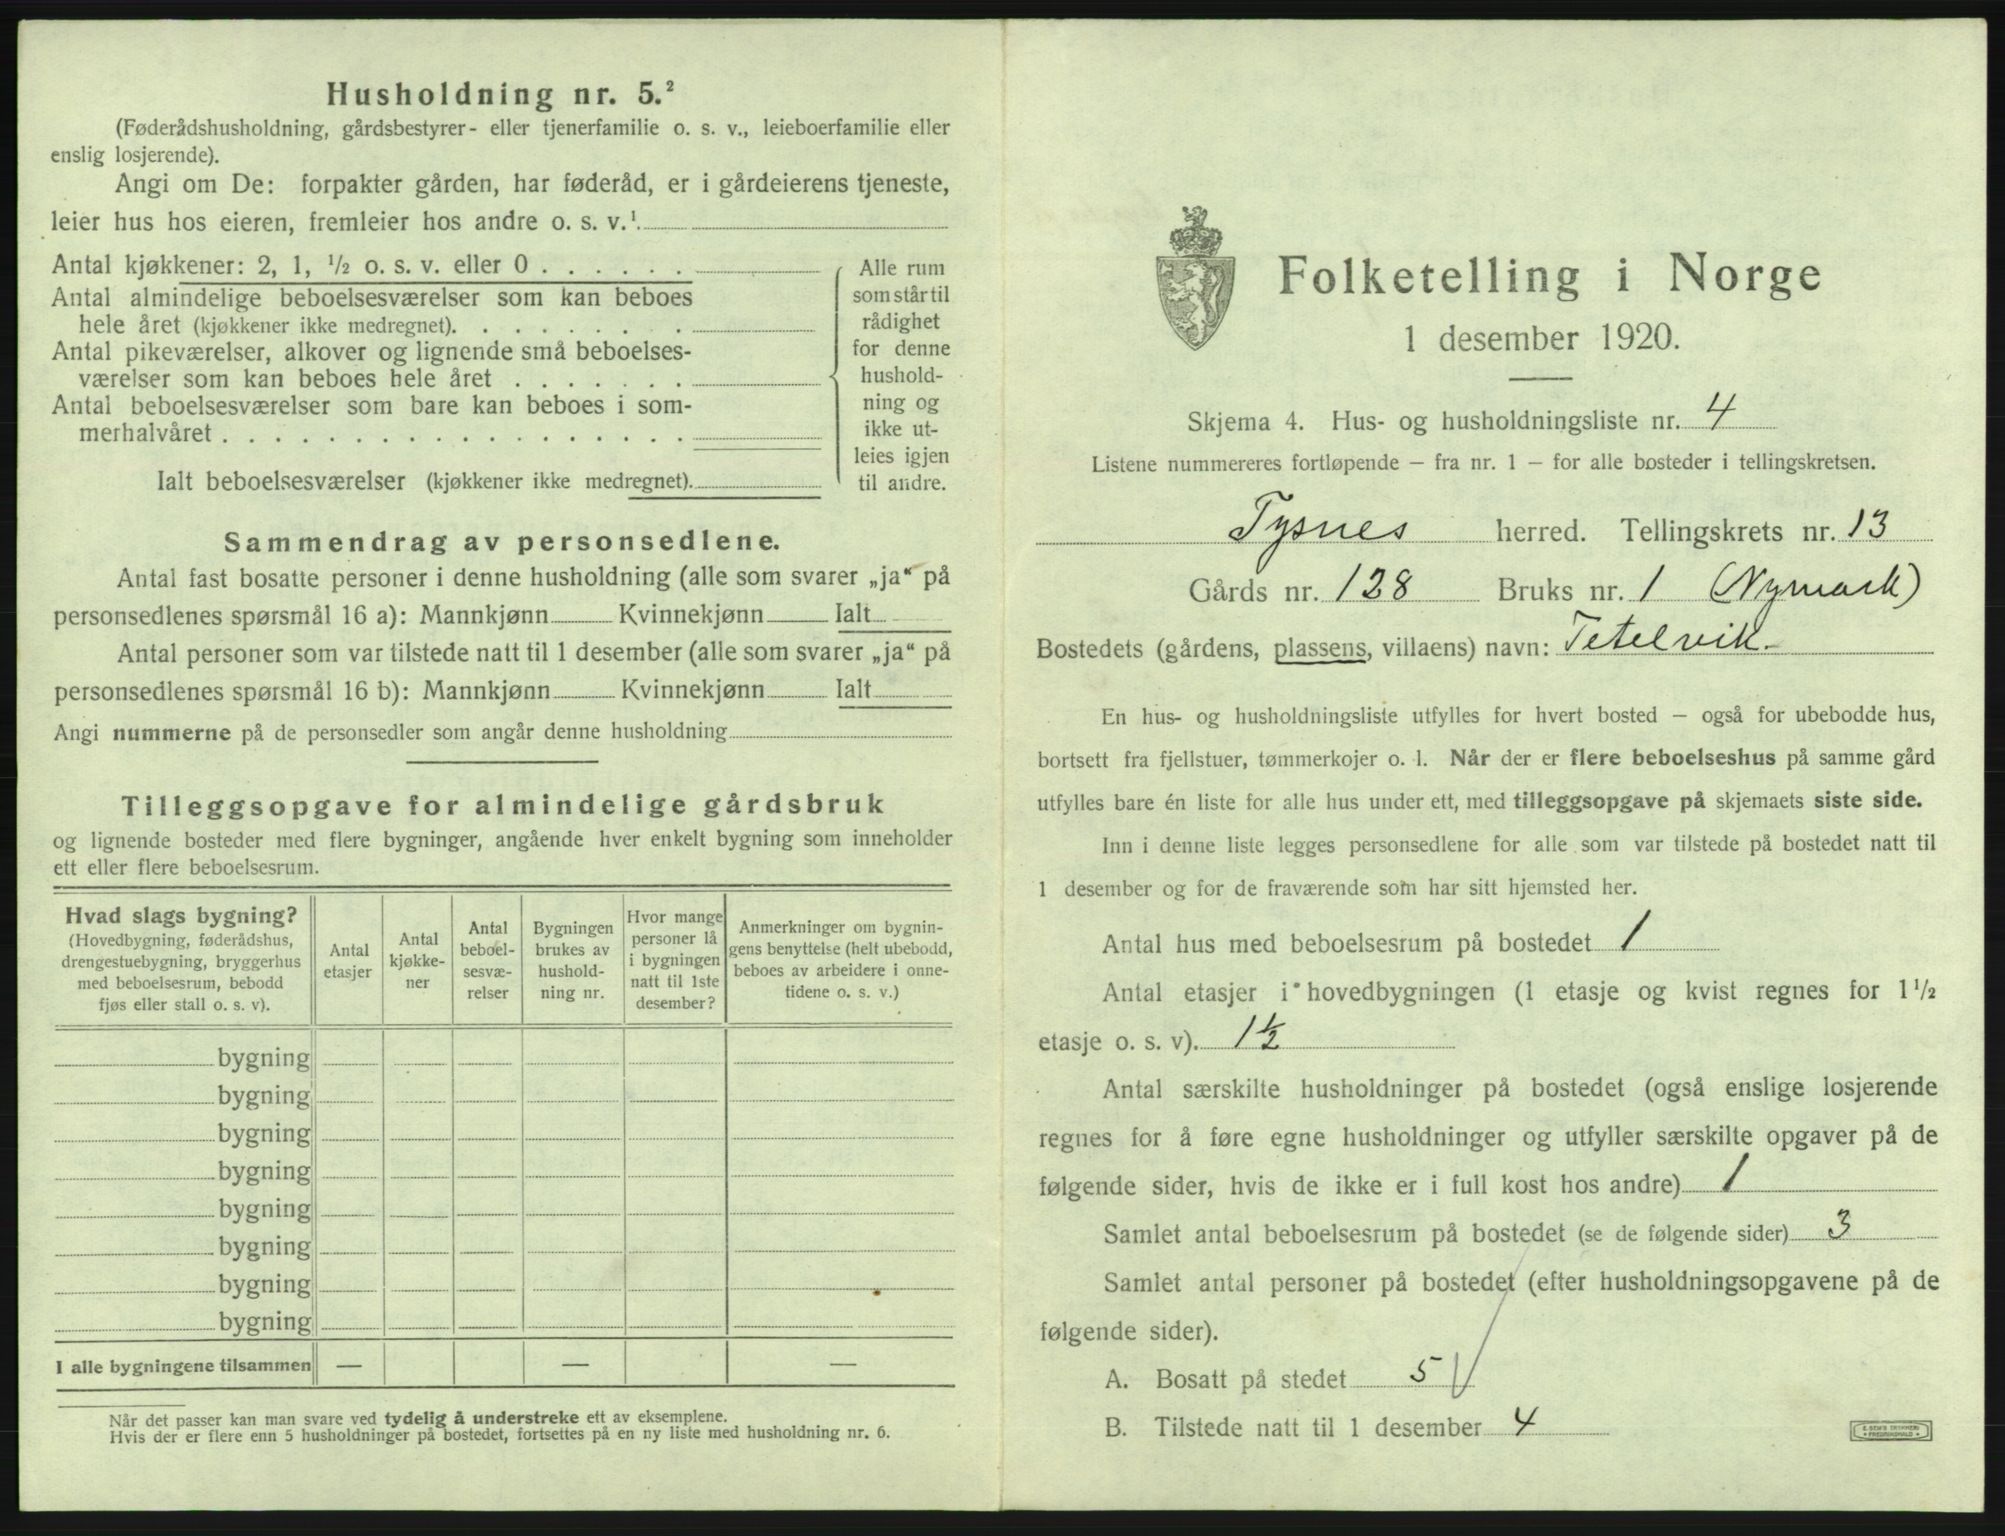 Husholdning nr. 5.²
(Føderådshusholdning, gårdsbestyrer- eller tjenerfamilie o. s. v., leieboerfamilie eller
enslig losjerende).
Angi om De: forpakter gården, har føderåd, er i gårdeierens tjeneste,
leier hus hos eieren, fremleier hos andre o. s. v.¹
Antal kjøkkener: 2, 1, ½ o. s. v. eller 0
Antal almindelige beboelsesværelser som kan beboes
hele året (kjøkkener ikke medregnet).
Antal pikeværelser, alkover og lignende små beboelses-
værelser som kan beboes hele året
Antal beboelsesværelser som bare kan beboes i som-
merhalvåret
Ialt beboelsesværelser (kjøkkener ikke medregnet).
Alle rum
som står til
rådighet
for denne
hushold-
ning og
ikke ut-
leies igjen
til andre.
Sammendrag av personsedlene.
Antal fast bosatte personer i denne husholdning (alle som svarer „ja“ på
personsedlenes spørsmål 16 a): Mannkjønn Kvinnekjønn Ialt
Antal personer som var tilstede natt til 1 desember (alle som svarer „ja“ på
personsedlenes spørsmål 16 b): Mannkjønn Kvinnekjønn Ialt
Angi nummerne på de personsedler som angår denne husholdning
Tilleggsopgave for almindelige gårdsbruk
og lignende bosteder med flere bygninger, angående hver enkelt bygning som inneholder
ett eller flere beboelsesrum.
Hvad slags bygning?
(Hovedbygning, føderådshus,
drengestuebygning, bryggerhus
med beboelsesrum, bebodd
fjøs eller stall o. s. v).
Antal
etasjer
Antal
kjøkke-
ner
Antal
beboel-
sesvæ-
relser
Bygningen
brukes av
hushold-
ning nr.
Hvor mange
personer lå
i bygningen
natt til 1ste
desember?
Anmerkninger om bygnin-
gens benyttelse (helt ubebodd,
beboes av arbeidere i onne-
tidene o. s. v.)
bygning
bygning
bygning
bygning
bygning
bygning
bygning
bygning
I alle bygningene tilsammen — — —
Når det passer kan man svare ved tydelig å understreke ett av eksemplene.
Hvis der er flere enn 5 husholdninger på bostedet, fortsettes på en ny liste med husholdning nr. 6.
Folketelling i Norge
1 desember 1920.
Skjema 4. Hus- og husholdningsliste nr. 4
Listene nummereres fortløpende — fra nr. 1 — for alle bosteder i tellingskretsen.
Tysnes herred. Tellingskrets nr. 13
Gårds nr. 128 Bruks nr. 1 (Nymark)
Bostedets (gårdens, plassens, villaens) navn: Tetelvik
En hus- og husholdningsliste utfylles for hvert bosted — også for ubebodde hus,
bortsett fra fjellstuer, tømmerkojer o. l. Når der er flere beboelseshus på samme gård
utfylles bare én liste for alle hus under ett, med tilleggsopgave på skjemaets siste side.
Inn i denne liste legges personsedlene for alle som var tilstede på bostedet natt til
1 desember og for de fraværende som har sitt hjemsted her.
Antal hus med beboelsesrum på bostedet 1
Antal etasjer i hovedbygningen (1 etasje og kvist regnes for 1½
etasje o. s. v). 1½
Antal særskilte husholdninger på bostedet (også enslige losjerende
regnes for å føre egne husholdninger og utfyller særskilte opgaver på de
følgende sider, hvis de ikke er i full kost hos andre) 1
Samlet antal beboelsesrum på bostedet (se de følgende sider) 3
Samlet antal personer på bostedet (efter husholdningsopgavene på de
følgende sider).
A. Bosatt på stedet 5
B. Tilstede natt til 1 desember 4